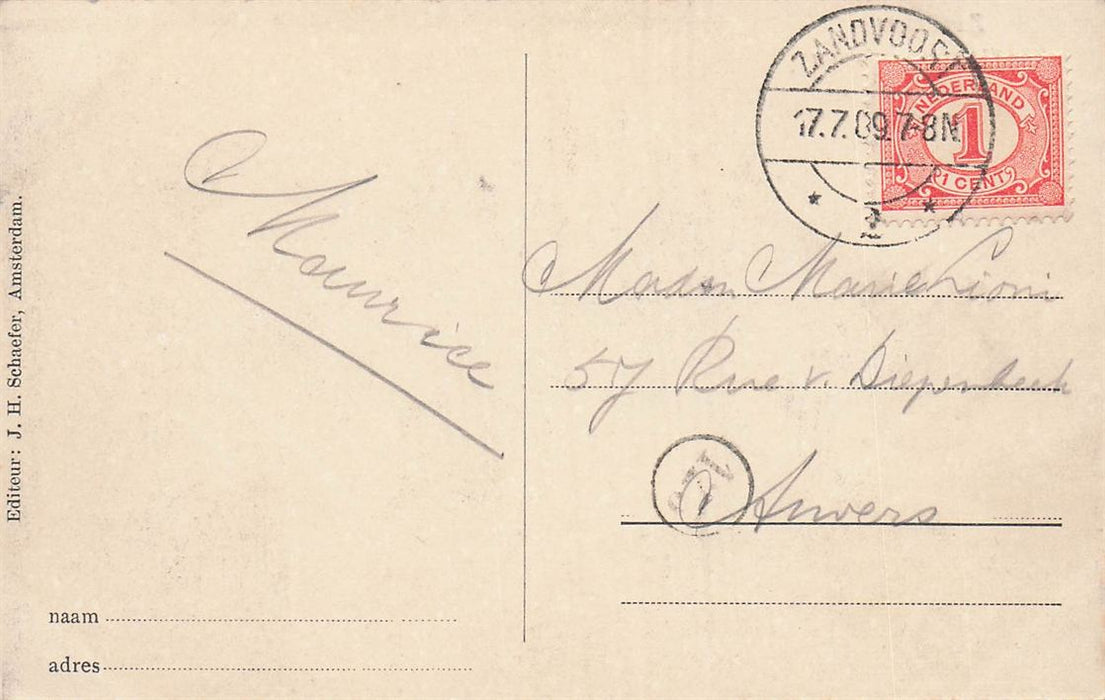 ZANDVOORT
17.7.09.7-8N
2
NEDERLAND
1
1 CENT
Maurice
Marie Lioni
57 Rue v. Diepenbeek
Anvers
Editeur: J. H. Schaefer, Amsterdam.
naam
adres